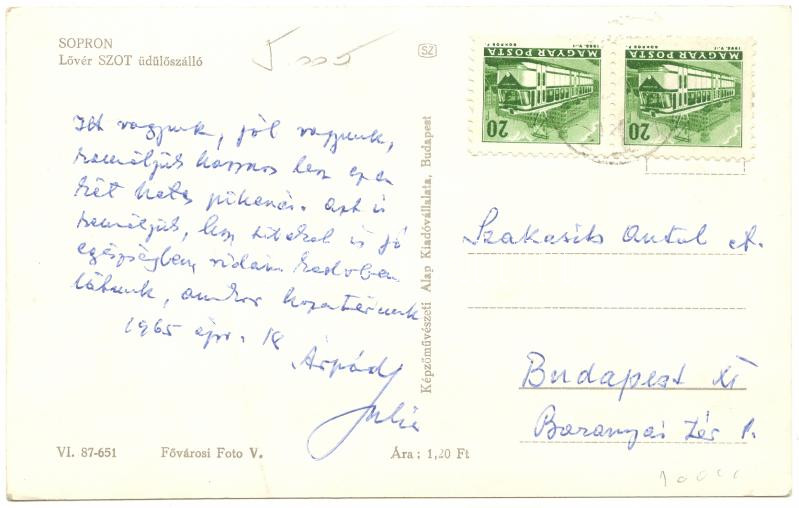 SOPRON
Lövér SZOT üdülőszálló
Itt vagyunk, jól vagyunk,
reméljük hasznos lesz ez a
két hetes pihenés. Azt is
reméljük, hogy titeket is jó
egészségben, vidám kedvben
látunk, amikor hazatérünk
1965 ápr. 18
Árpád
Julia
VI. 87-651 Fővárosi Foto V. Ára: 1,20 Ft
Képzőművészeti Alap Kiadóvállalata, Budapest
SZ
MAGYAR POSTA
20
MAGYAR POSTA
20
Szakasits Antal
Budapest XI
Baranyai tér 1.